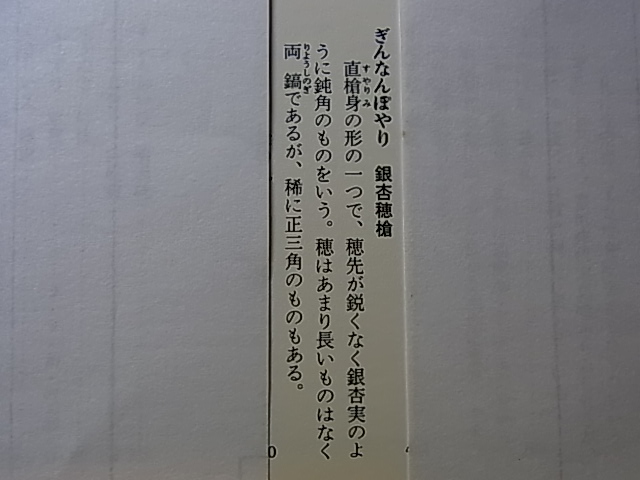 ぎんなんぽやり　銀杏穂槍
直槍身の形の一つで、穂先が鋭くなく銀杏実のよ
うに鈍角のものをいう。穂はあまり長いものはなく
両鎬であるが、稀に正三角のものもある。